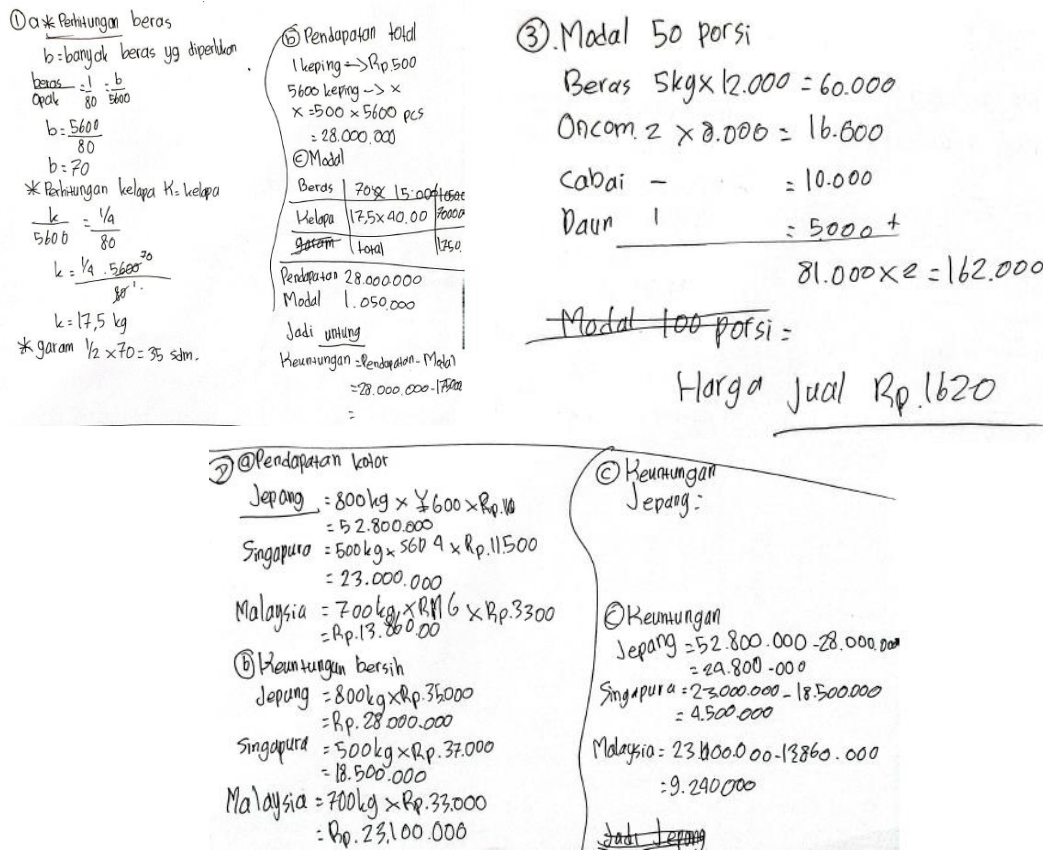 ① a * Perhitungan beras
b = banyak beras yg diperlukan
beras/opak = 1/80 = b/5600
b = 5600/80
b = 70
* Perhitungan kelapa K = kelapa
k/5600 = 1/4/80
k = 1/4 . 5600 70/80 1
k = 17,5 kg
* garam 1/2 x 70 = 35 sdm.
ⓑ Pendapatan total
1 keping → Rp.500
5600 keping → x
x = 500 x 5600 pcs
= 28.000.000
ⓒ Modal
Beras | 70 x 15.000
Kelapa | 17,5 x 40.00 | 70000
garam | total | 1750.
Pendapatan 28.000.000
Modal 1.050.000
Jadi untung
Keuntungan = Pendapatan - Modal
= 28.000.000 -
=
③. Modal 50 porsi
Beras 5kg x 12.000 = 60.000
Oncom. 2 x 8.000 = 16.000
Cabai - = 10.000
Daun 1 = 5000 +
81.000 x 2 = 162.000
Modal 100 porsi =
Harga jual Rp.1620
ⓐ Pendapatan kotor
Jepang = 800kg x ¥600 x Rp.110
= 52.800.000
Singapura = 500kg x SGD 4 x Rp.11500
= 23.000.000
Malaysia = 700kg x RM 6 x Rp.3300
= Rp.13.860.00
ⓑ Keuntungan bersih
Jepang = 800kg x Rp.35.000
= Rp.28.000.000
Singapura = 500kg x Rp.37.000
= 18.500.000
Malaysia = 700kg x Rp.33.000
= Rp.23,100.000
ⓒ Keuntungan
Jepang =
ⓒ Keuntungan
Jepang = 52.800.000 - 28.000.000
= 24.800.000
Singapura = 23.000.000 - 18.500.000
= 4.500.000
Malaysia = 23.100.000 - 13860.000
= 9.240000
Jadi Jepang